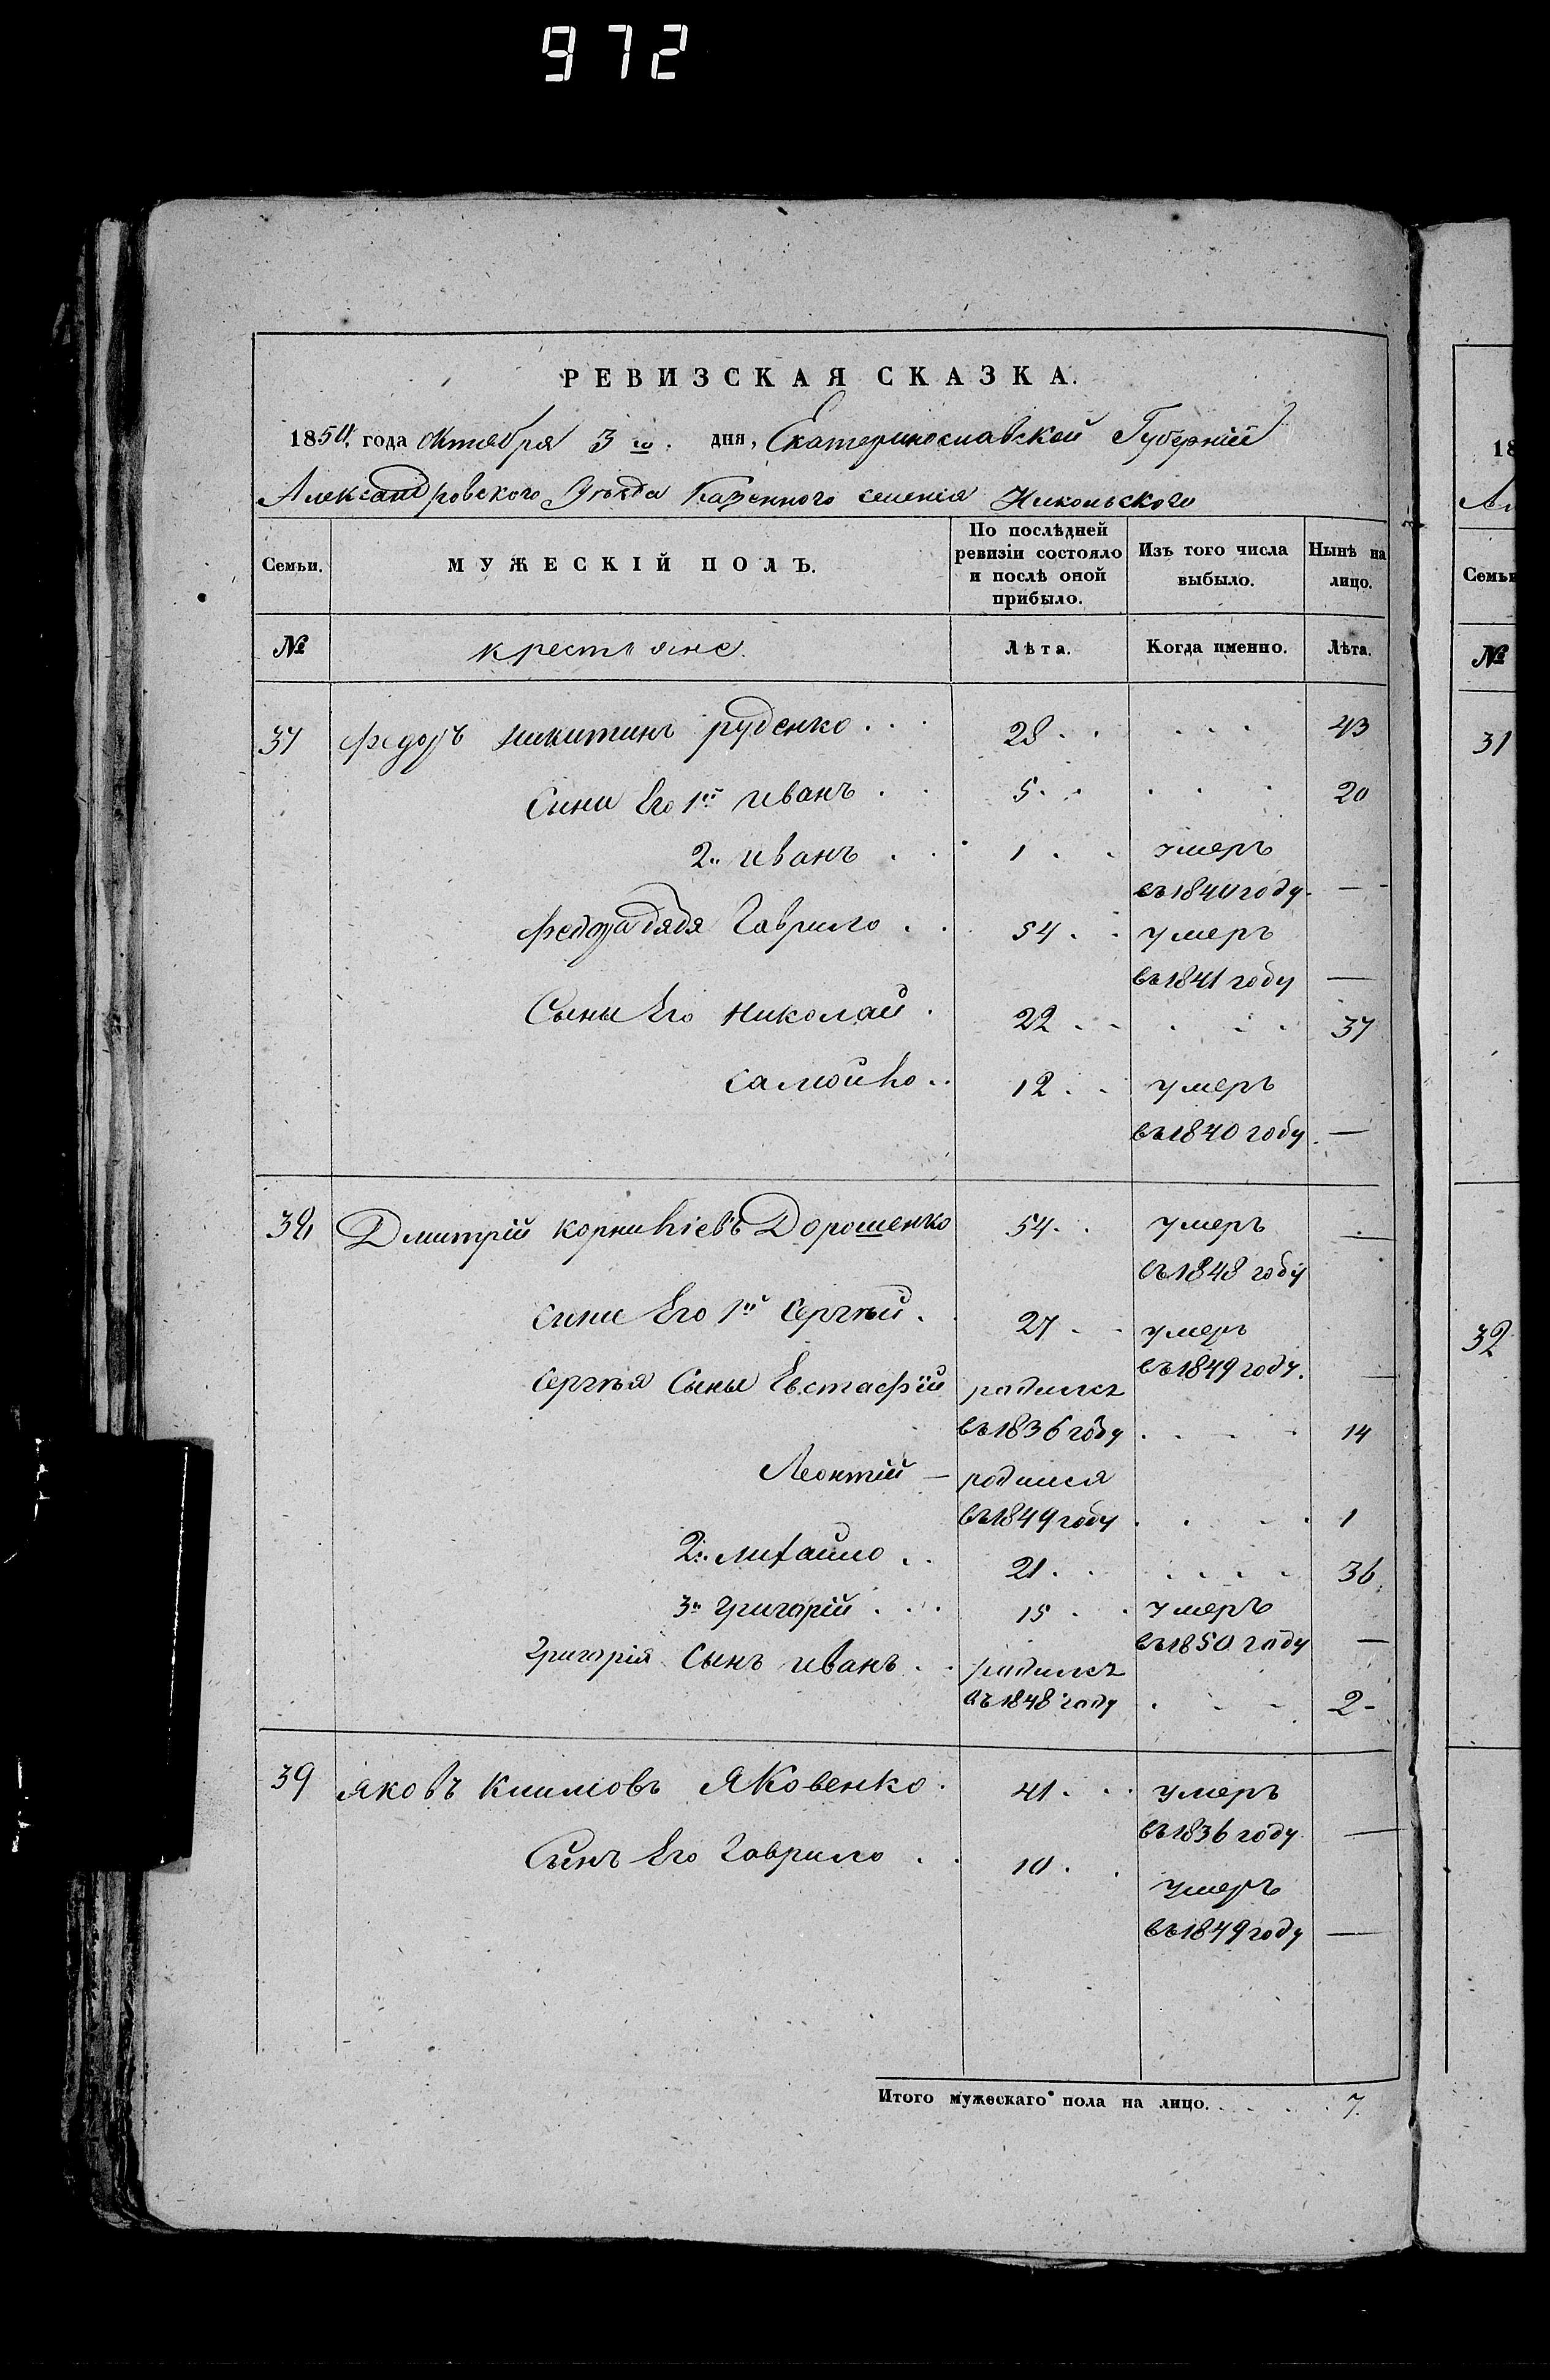 972
РЕВИЗСКАЯ СКАЗКА.
1850. года Октября 3го. дня, Екатеринославской Губернiи
Александровского Уѣзда Казенного селенiя Никольского
Семьи. МУЖЕСКIЙ ПОЛЪ. По послѣдней ревизiи состояло и послѣ оной прибыло. Изъ того числа выбыло. Нынѣ на лицо.
№ крестьяне. Лѣта. Когда именно. Лѣта.
37 Федоръ Никитинъ Руденко . . . 28 . . . . . 43
Сини Его 1й Иванъ . . 5 . . . . . 20
2й Иванъ . . . 1 . . умеръ
въ 1840 году. —
Федора дядя Гаврило . . 54 . . умеръ
въ 1841 году —
Сыны Его Николай . 22 . . . . . 37
Самойло . . 12 . . умеръ
въ 1840 году. —
38 Дмитрiй Корнилiевъ Дорошенко 54 . . умеръ —
въ 1848 году
сини Его 1й Сергѣй . 27 . . умеръ
въ 1849 году. —
Сергѣя Сыны Евстафiй родился
въ 1836 году . . . . 14
Леонтiй — родился
въ 1849 году . . . . 1
2й Михайло . . 21 . . . . . . 36
3й Григорiй . . . 15 . . умеръ
въ 1850 году —
Григорiя Сынъ Иванъ . . родился
въ 1848 году . . . 2 -
39 Яковъ Климовъ Яковенко . 41 . . умеръ
въ 1836 году. —
Сынъ Его Гаврило . . 10 . . умеръ
въ 1849 году —
Итого мужескаго пола на лицо. . . . . . 7.
18
Ал
Семьи
№
31
32